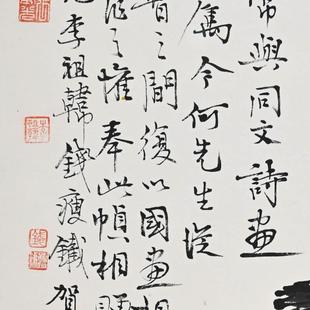 常與同文詩畫
今何先生從
之間復以國畫相
之奉此幀相
李祖韓錢瘦鐵賀